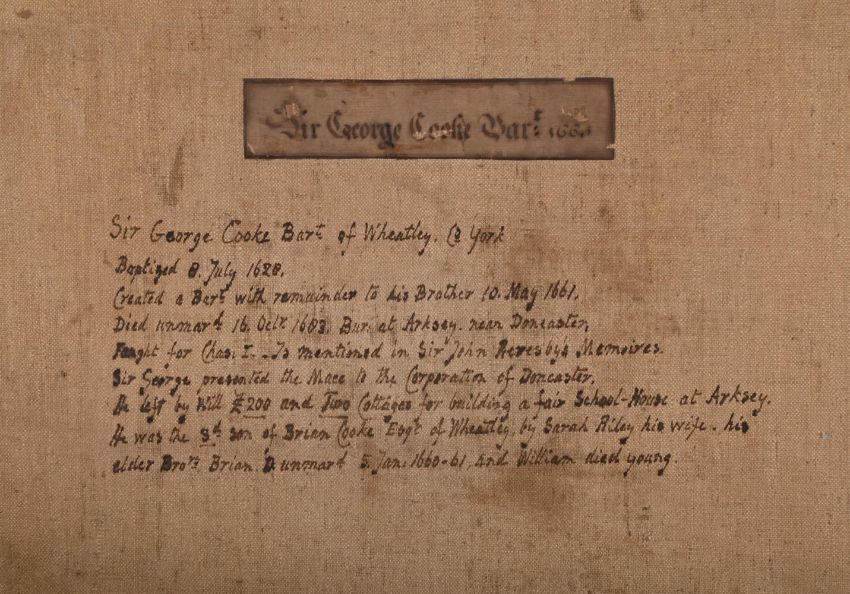 Sir George Cooke Bart.
Sir George Cooke Bart of Wheatley. Co York
Baptized 8. July 1628.
Created a Bart with remainder to his Brother 10. May 1661.
Died unmard 16. Octr 1683. Bur. at Arksey. near Doncaster.
Fought for Chas. I. - Is mentioned in Sir John Reresby's Memoires.
Sir George presented the Mace to the Corporation of Doncaster.
He left by Will £200 and Two Cottages for building a fair School-House at Arksey.
He was the 3d son of Brian Cooke Esqr of Wheatley, by Sarah Riley his wife. his
elder Brors Brian D. unmard 5. Jan. 1660-61, and William died young.